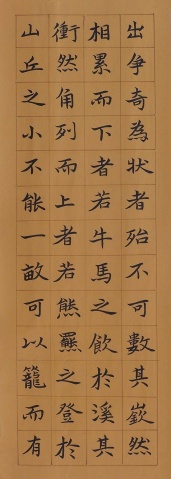 出爭奇為狀者殆不可數其嶔然
相累而下者若牛馬之飲於溪其
衝然角列而上者若熊羆之登於
山丘之小不能一畝可以籠而有